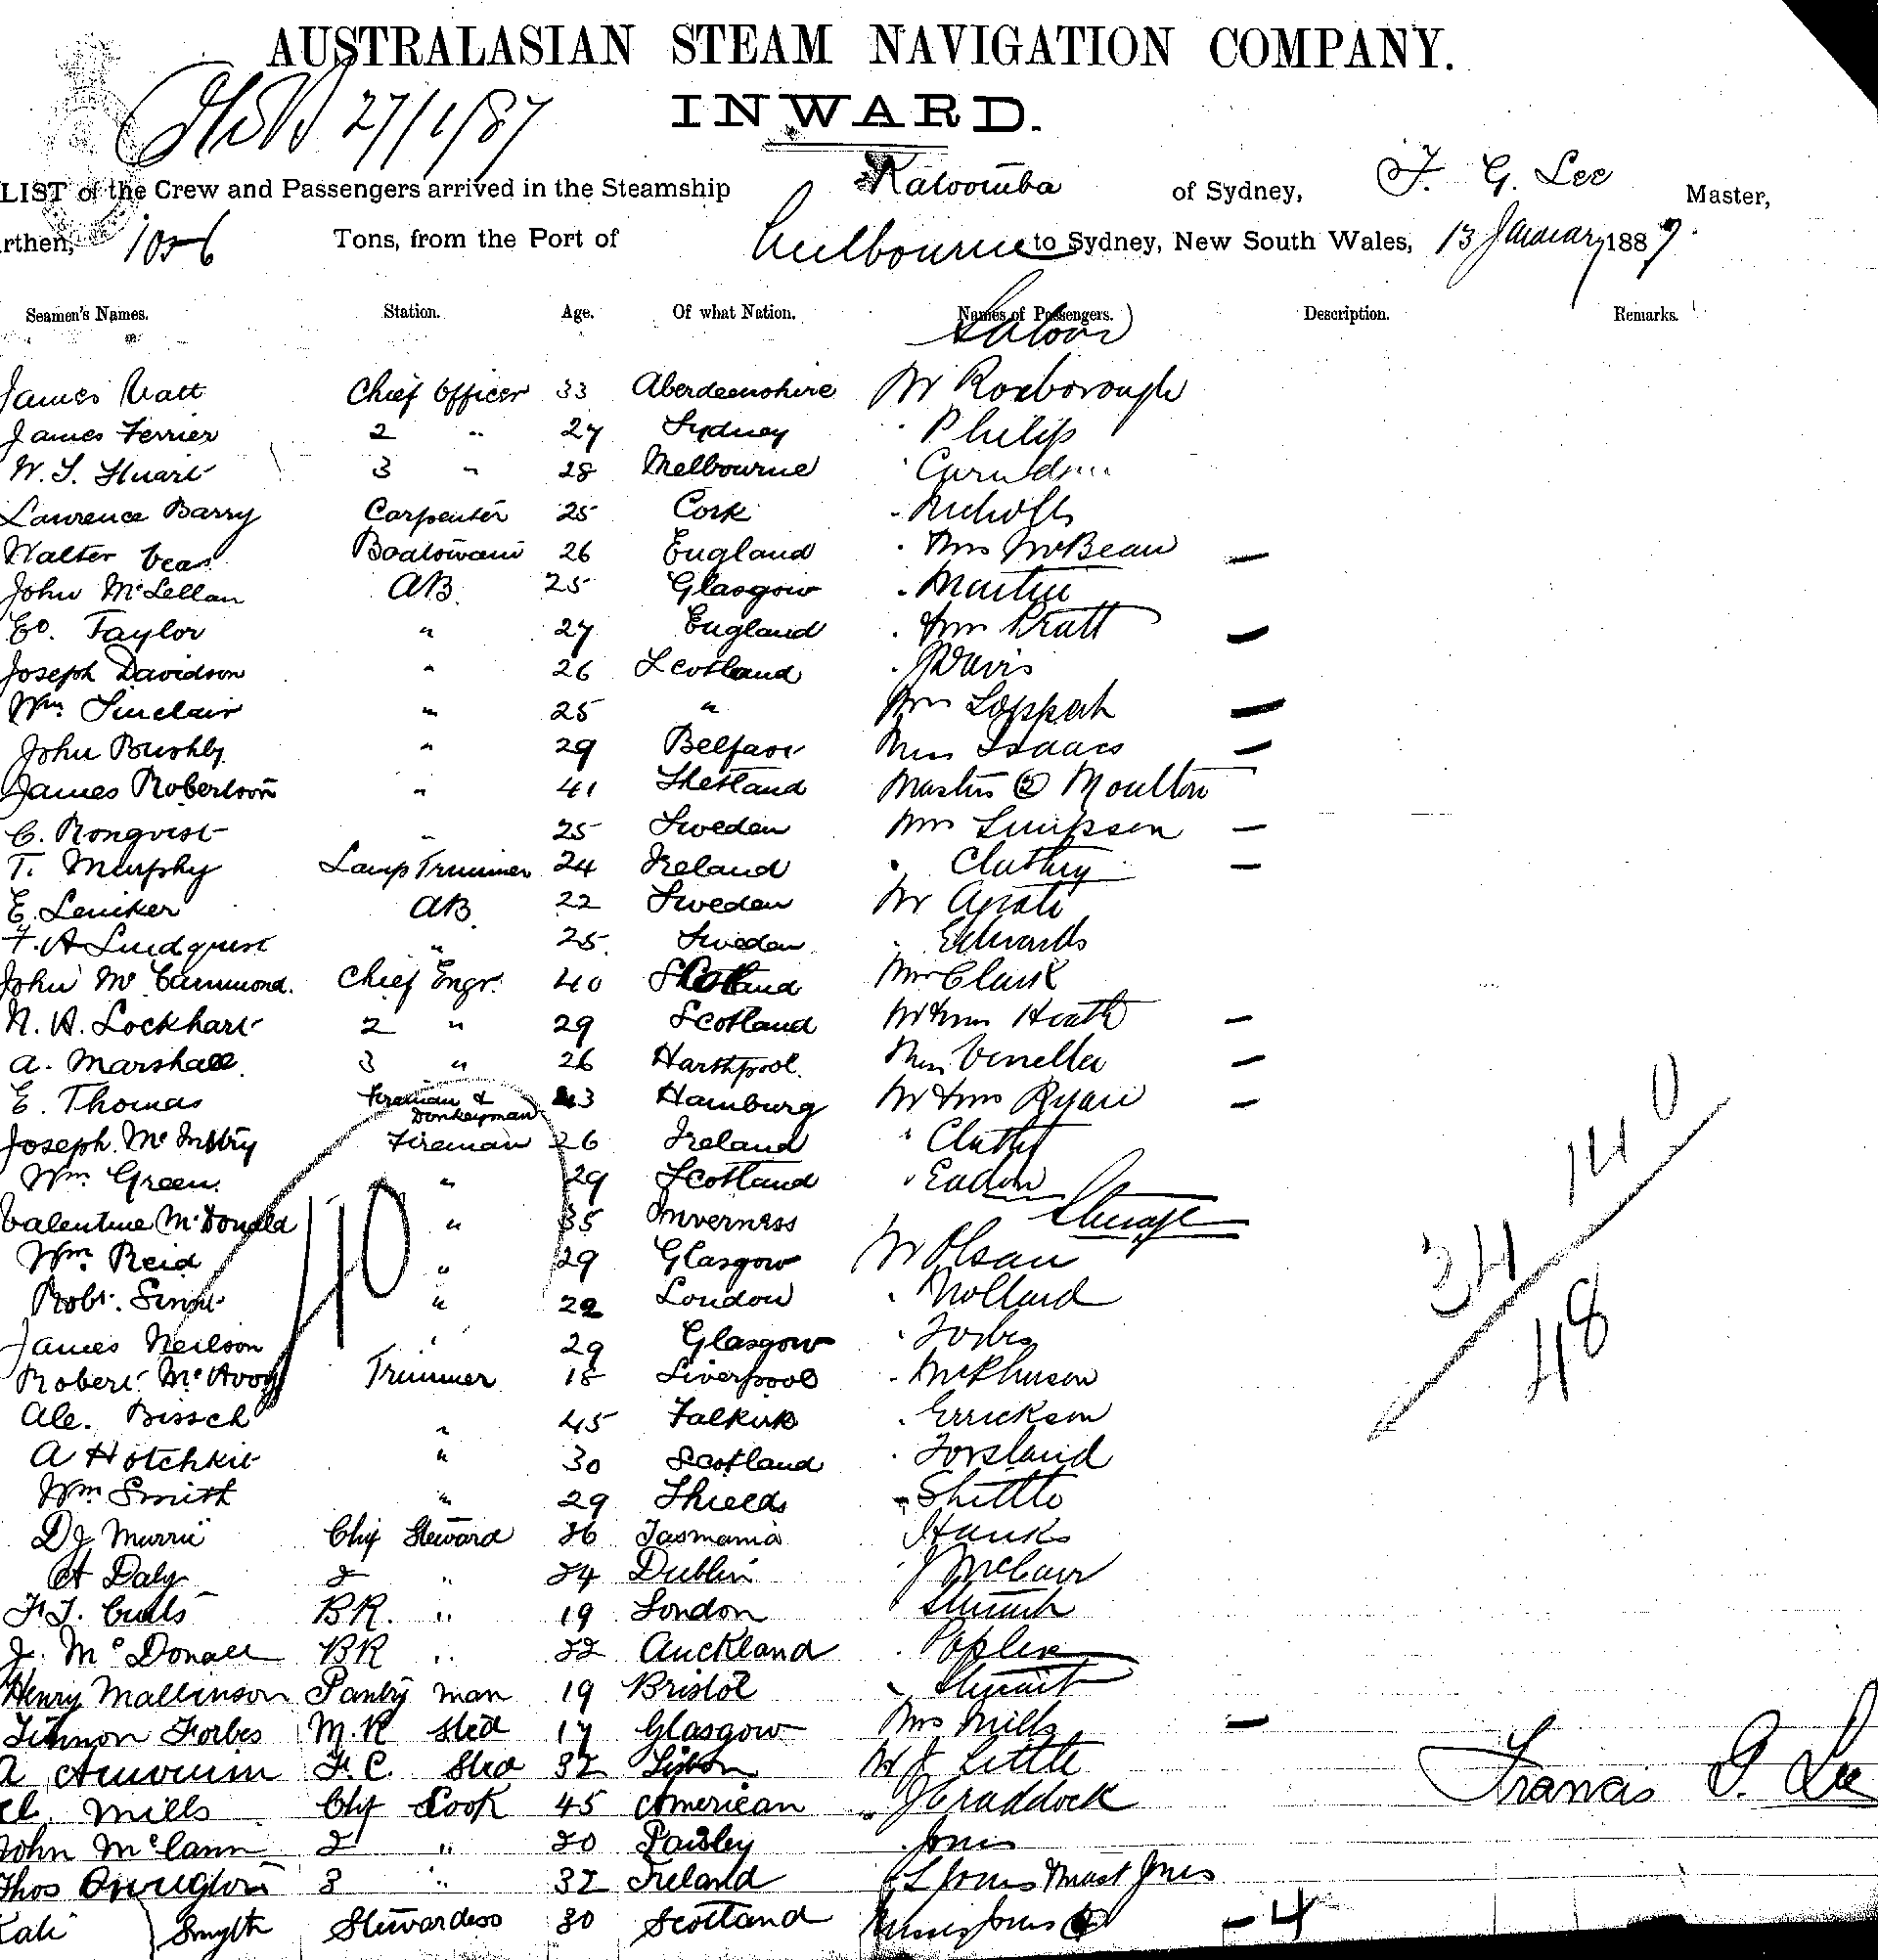 AUSTRALASIAN STEAM NAVIGATION COMPANY.
27/1/87 INWARD.
LIST of the Crew and Passengers arrived in the Steamship Katoomba of Sydney, F. G. Lee Master,
rthen, 1056 Tons, from the Port of Melbourne to Sydney, New South Wales, 13 January 1887.
Seamen's Names. Station. Age. Of what Nation. Names of Passengers. Description. Remarks.
Saloon
James Watt Chief Officer 33 Aberdeenshire Mr Roxborough
James Ferrier 2 " 27 Sydney " Philip
W. S. Stuart 3 " 28 Melbourne "
Lawrence Barry Carpenter 25 Cork " Nicholls
Walter Boatswain 26 England " Mrs McBean —
John McLellan AB. 25 Glasgow " Martin
Ed. Taylor " 27 England " & Mrs Pratt —
Joseph Davidson " 26 Scotland " J Davis
Wm. Sinclair " 25 " Mrs —
John Bushby " 29 Belfast Miss Isaacs —
James Robertson " 41 Shetland Masters (2) Moulton
C. Ronqvist " 25 Sweden Mrs Simpson —
T. Murphy Lamp Trimmer 24 Ireland " —
E. Leniker AB. 22 Sweden Mr
F. A Lindquist " 25 Sweden " Edwards
John McCammond. Chief Engr. 40 Scotland Mr Clark
N. A. Lockhart 2 " 29 Scotland Mr & Mrs Heath —
A. Marshall. 3 " 26 Harthpool. Miss —
E. Thomas Fireman & Donkeyman 43 Hamburg Mr & Mrs Ryan —
Joseph. Fireman 26 Ireland "
Wm. Green. " 29 Scotland "
Steerage
Valentine McDonald " 35 Inverness
Wm. Reid " 29 Glasgow Mr Olsan
Robt. " 22 London " Mollard
James Neilson " 29 Glasgow " Forbes
Robert McAvoy Trimmer 18 Liverpool " McPherson
Ale. Bissch " 45 Falkirk " Errickson
A Hotchkis " 30 Scotland " Forsland
Wm Smith " 29 Shields " Shittto
DJ Murrie Chif Steward 26 Tasmania Hanks
A Daly 2 " 24 Dublin
F. J. BR. " 19 London
J. McDonall BR " 22 Auckland
Henry Mallinson Pantry man 19 Bristol " Stuart
Forbes M.R Std 17 Glasgow Mrs Mills —
A F.C. Std 32 Lisbon Mr J Little
Mills Chf Cook 45 American " J Craddock
John McCann 2 " 20 Paisley " Jones
Thos 3 " 32 Ireland Jones Mast Jones
Kate Smyth Stewardess 30 Scotland Misses Jones (2) — 4
40
14 0
34
48
Francis G. Lee